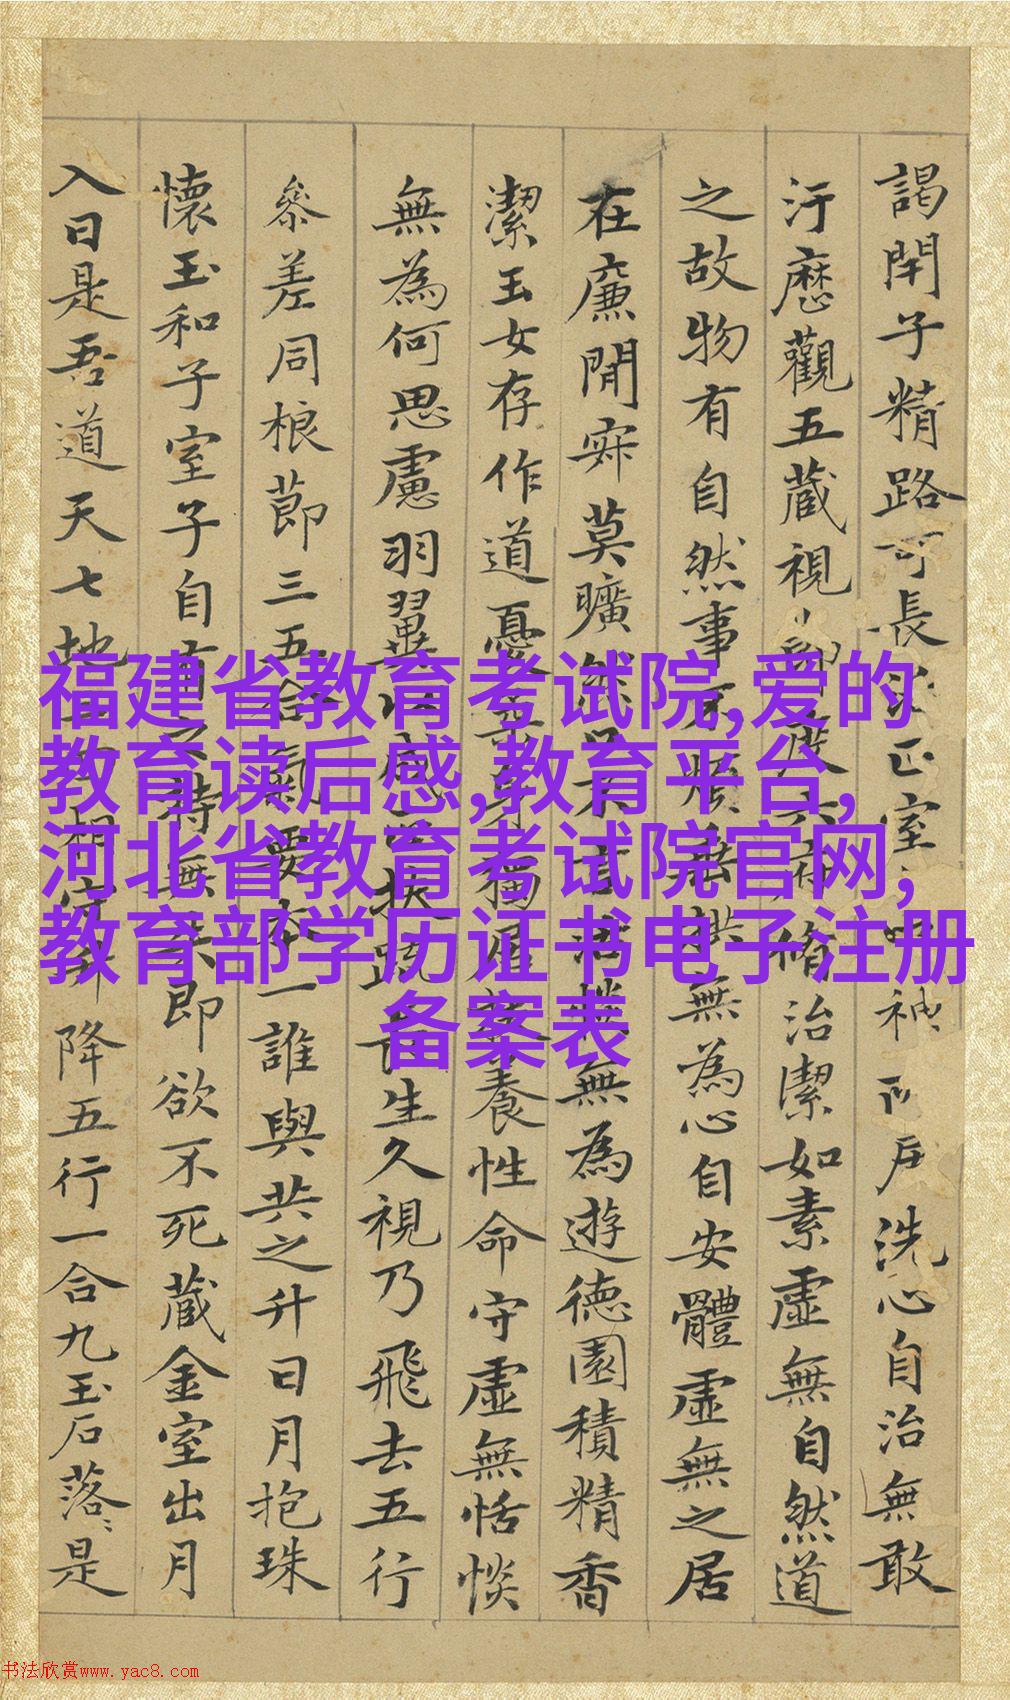 謁閇子精路可長正室洗心自治無敢
汙歷觀五藏視脩治潔如素虛無自然道
之故物有自然事不煩無為心自安體虛無之居
在廉閒寂莫曠然無為遊德園積精香
潔玉女存作道憂獨居養性命守虛無恬惔
無為何思慮羽翼以成扶疏長生久視乃飛去五行
叅差同根節三五合氣要本一誰與共之升日月抱珠
懷玉和子室子自有之持無失即欲不死藏金室出月
入日是吾道天七地三相守升降五行一合九玉石落〻是
福建省教育考试院,爱的
教育读后感,教育平台,
河北省教育考试院官网,
教育部学历证书电子注册
备案表
书法欣赏www.yac8.com